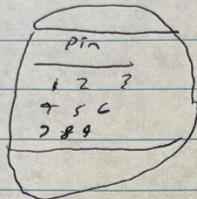 Pin
1 2 3
4 5 6
7 8 9